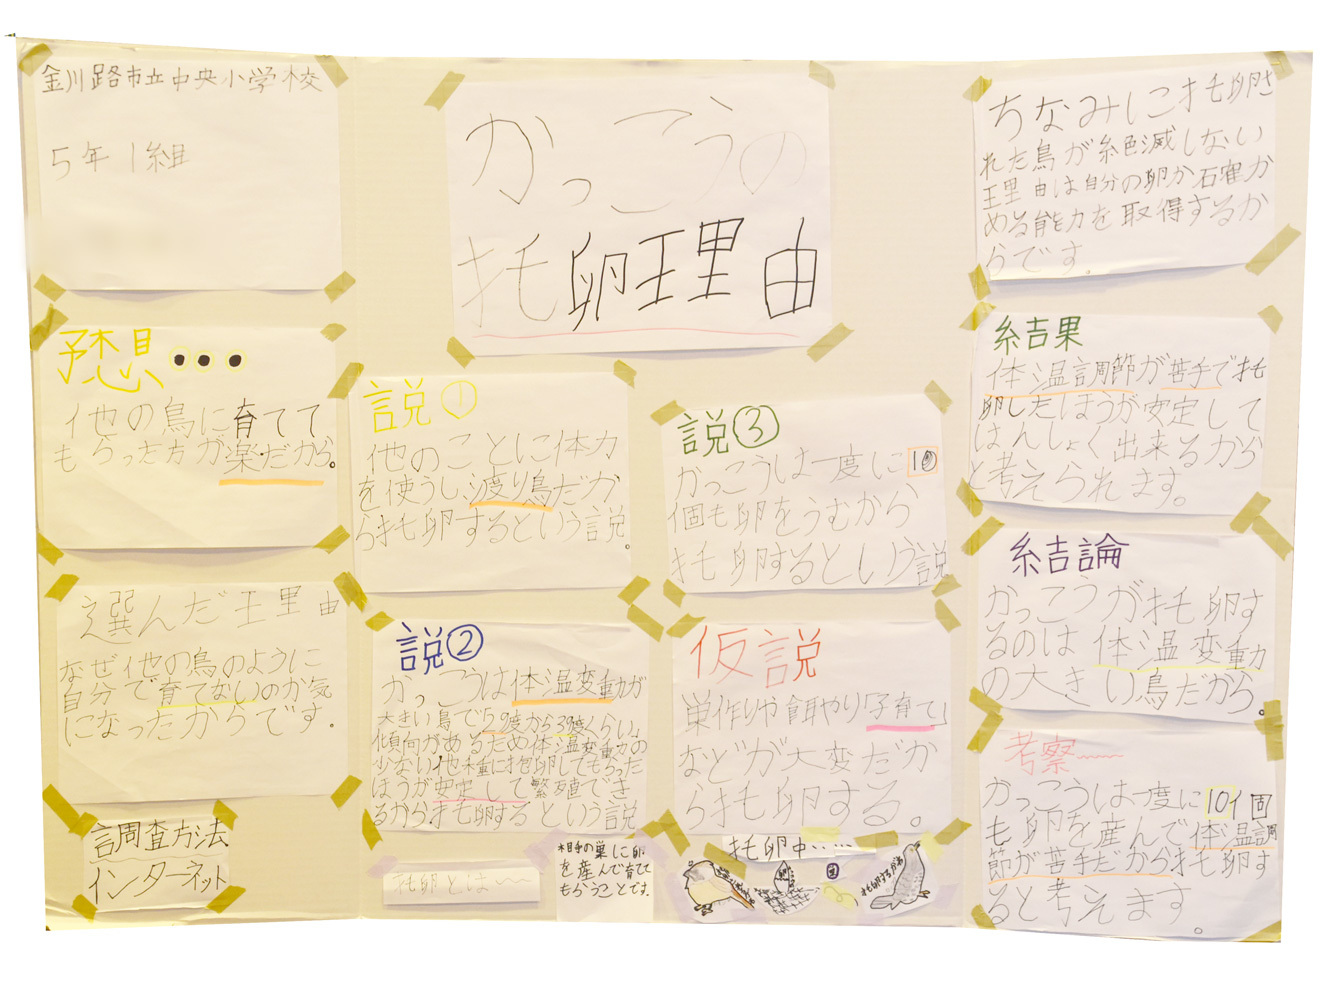 釧路市立中央小学校
5年1組
かっこうの
托卵理由
予想・・・
他の鳥に育てて
もらった方が楽だから。
選んだ理由
なぜ他の鳥のように
自分で育てないのか気
になったからです。
調査方法
インターネット
説①
他のことに体力
を使うし、渡り鳥だか
ら托卵するという説。
説②
かっこうは体温変動が
大きい鳥で29度から39度くらい。
傾向があるため体温変動の
少ない他種に抱卵してもらった
ほうが安定して繁殖でき
るから托卵するという説
説③
かっこうは一度に10
個も卵をうむから
托卵するという説
仮説
巣作りや餌やり「子育て」
などが大変だか
ら托卵する。
托卵とは〜
相手の巣に卵
を産んで育てて
もらうことです。
托卵中・・・・・
卵
托卵するがお
ちなみに托卵さ
れた鳥が絶滅しない
理由は自分の卵か確か
める能力を取得するか
らです。
結果
体温調節が苦手で托
卵したほうが安定して
はんしょく出来るから
と考えられます。
結論
かっこうが托卵す
るのは体温変動
の大きい鳥だから。
考察〜
かっこうは一度に10個
も卵を産んで体温調
節が苦手だから托卵す
ると考えます。